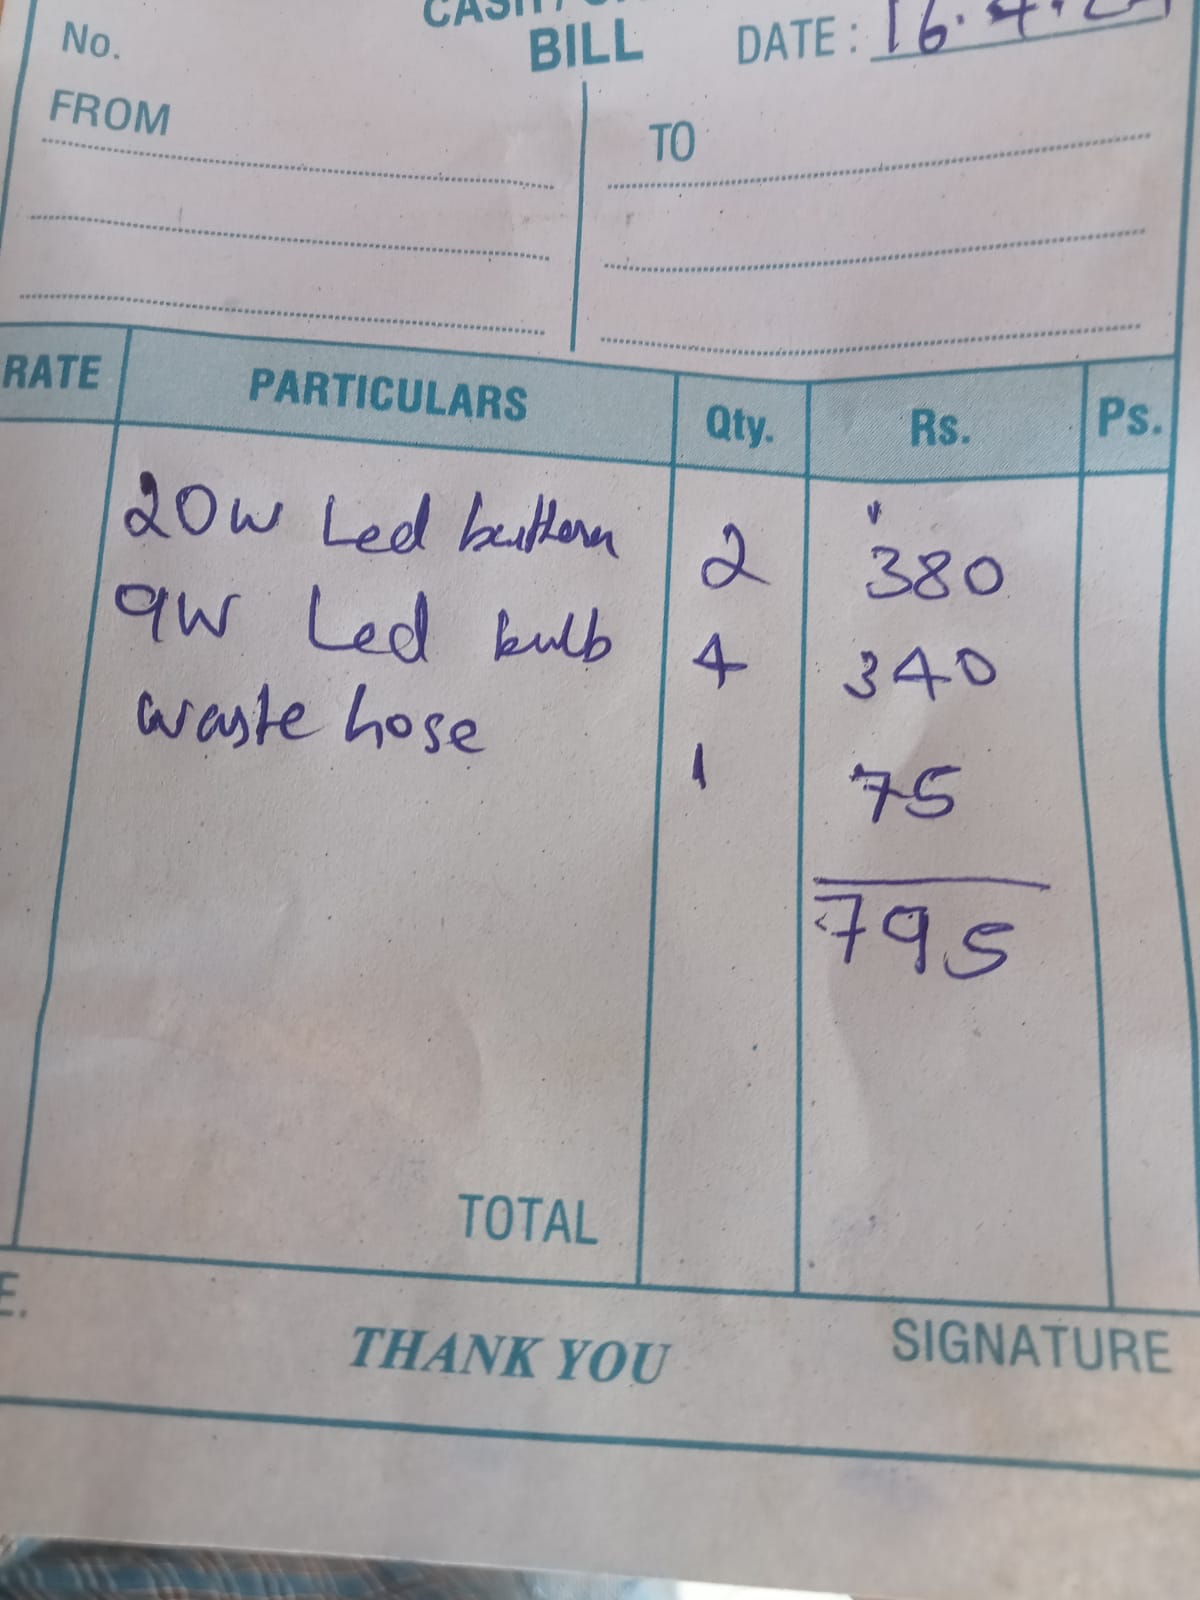 BILL
No.
DATE : 16.4.
FROM
TO
RATE PARTICULARS Qty. Rs. Ps.
20W Led 2 380
9W Led bulb 4 340
waste hose 1 75
795
TOTAL
E.
THANK YOU
SIGNATURE